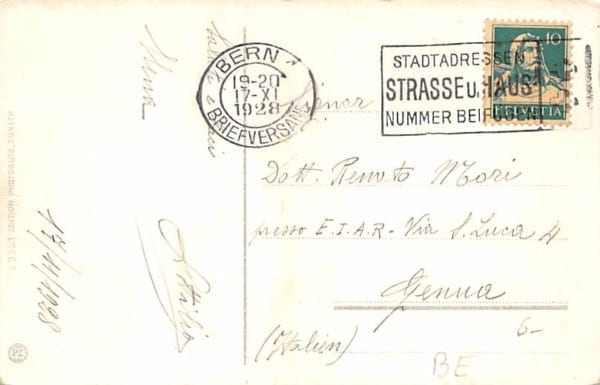 BERN
19-20
17-XI
1928
BRIEFVERSAND
STADTADRESSEN =
STRASSE u. HAUS-
NUMMER BEIFÜGEN!
10
HELVETIA
Signor
Dott. Renato Mori
presso E.I.A.R. - Via S. Luca 4
Genua
(Italien)
6-
BE
17/11/1928
Attilio
EDITION PHOTOGLOB, ZÜRICH
P.Z.